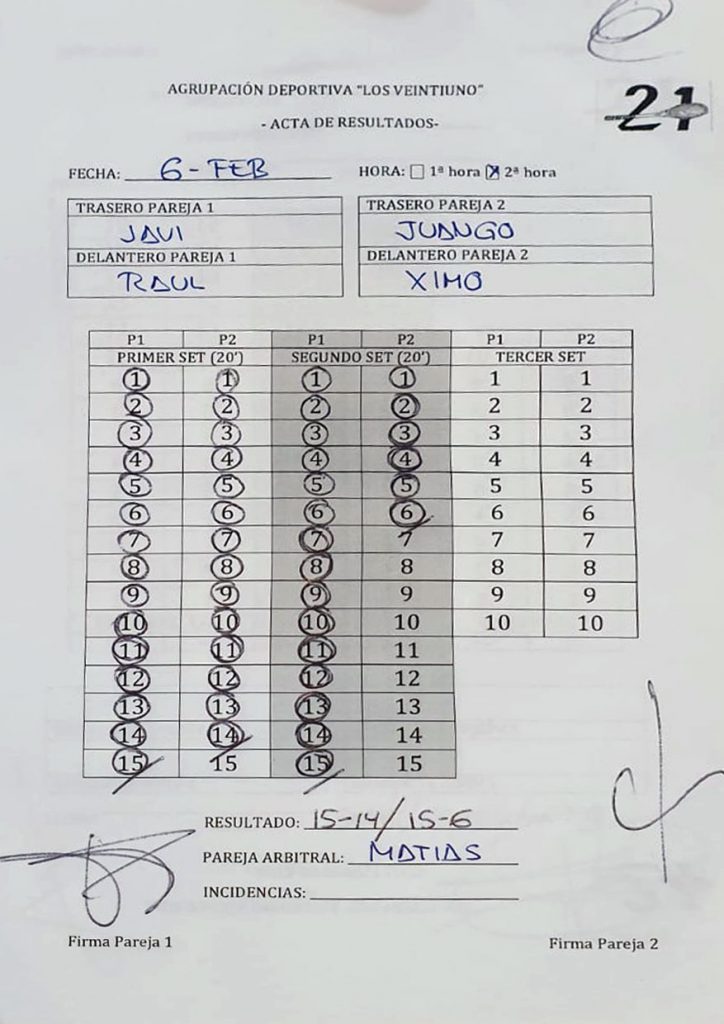 21
AGRUPACIÓN DEPORTIVA "LOS VEINTIUNO"
- ACTA DE RESULTADOS-
FECHA: 6-FEB HORA: 1ª hora 2ª hora
TRASERO PAREJA 1 TRASERO PAREJA 2
JAVI JUANGO
DELANTERO PAREJA 1 DELANTERO PAREJA 2
RAUL XIMO
P1 P2 P1 P2 P1 P2
PRIMER SET (20') SEGUNDO SET (20') TERCER SET
1 1 1 1 1 1
2 2 2 2 2 2
3 3 3 3 3 3
4 4 4 4 4 4
5 5 5 5 5 5
6 6 6 6 6 6
7 7 7 7 7 7
8 8 8 8 8 8
9 9 9 9 9 9
10 10 10 10 10 10
11 11 11 11
12 12 12 12
13 13 13 13
14 14 14 14
15 15 15 15
RESULTADO: 15-14/15-6
PAREJA ARBITRAL: MATIAS
INCIDENCIAS:
Firma Pareja 1 Firma Pareja 2